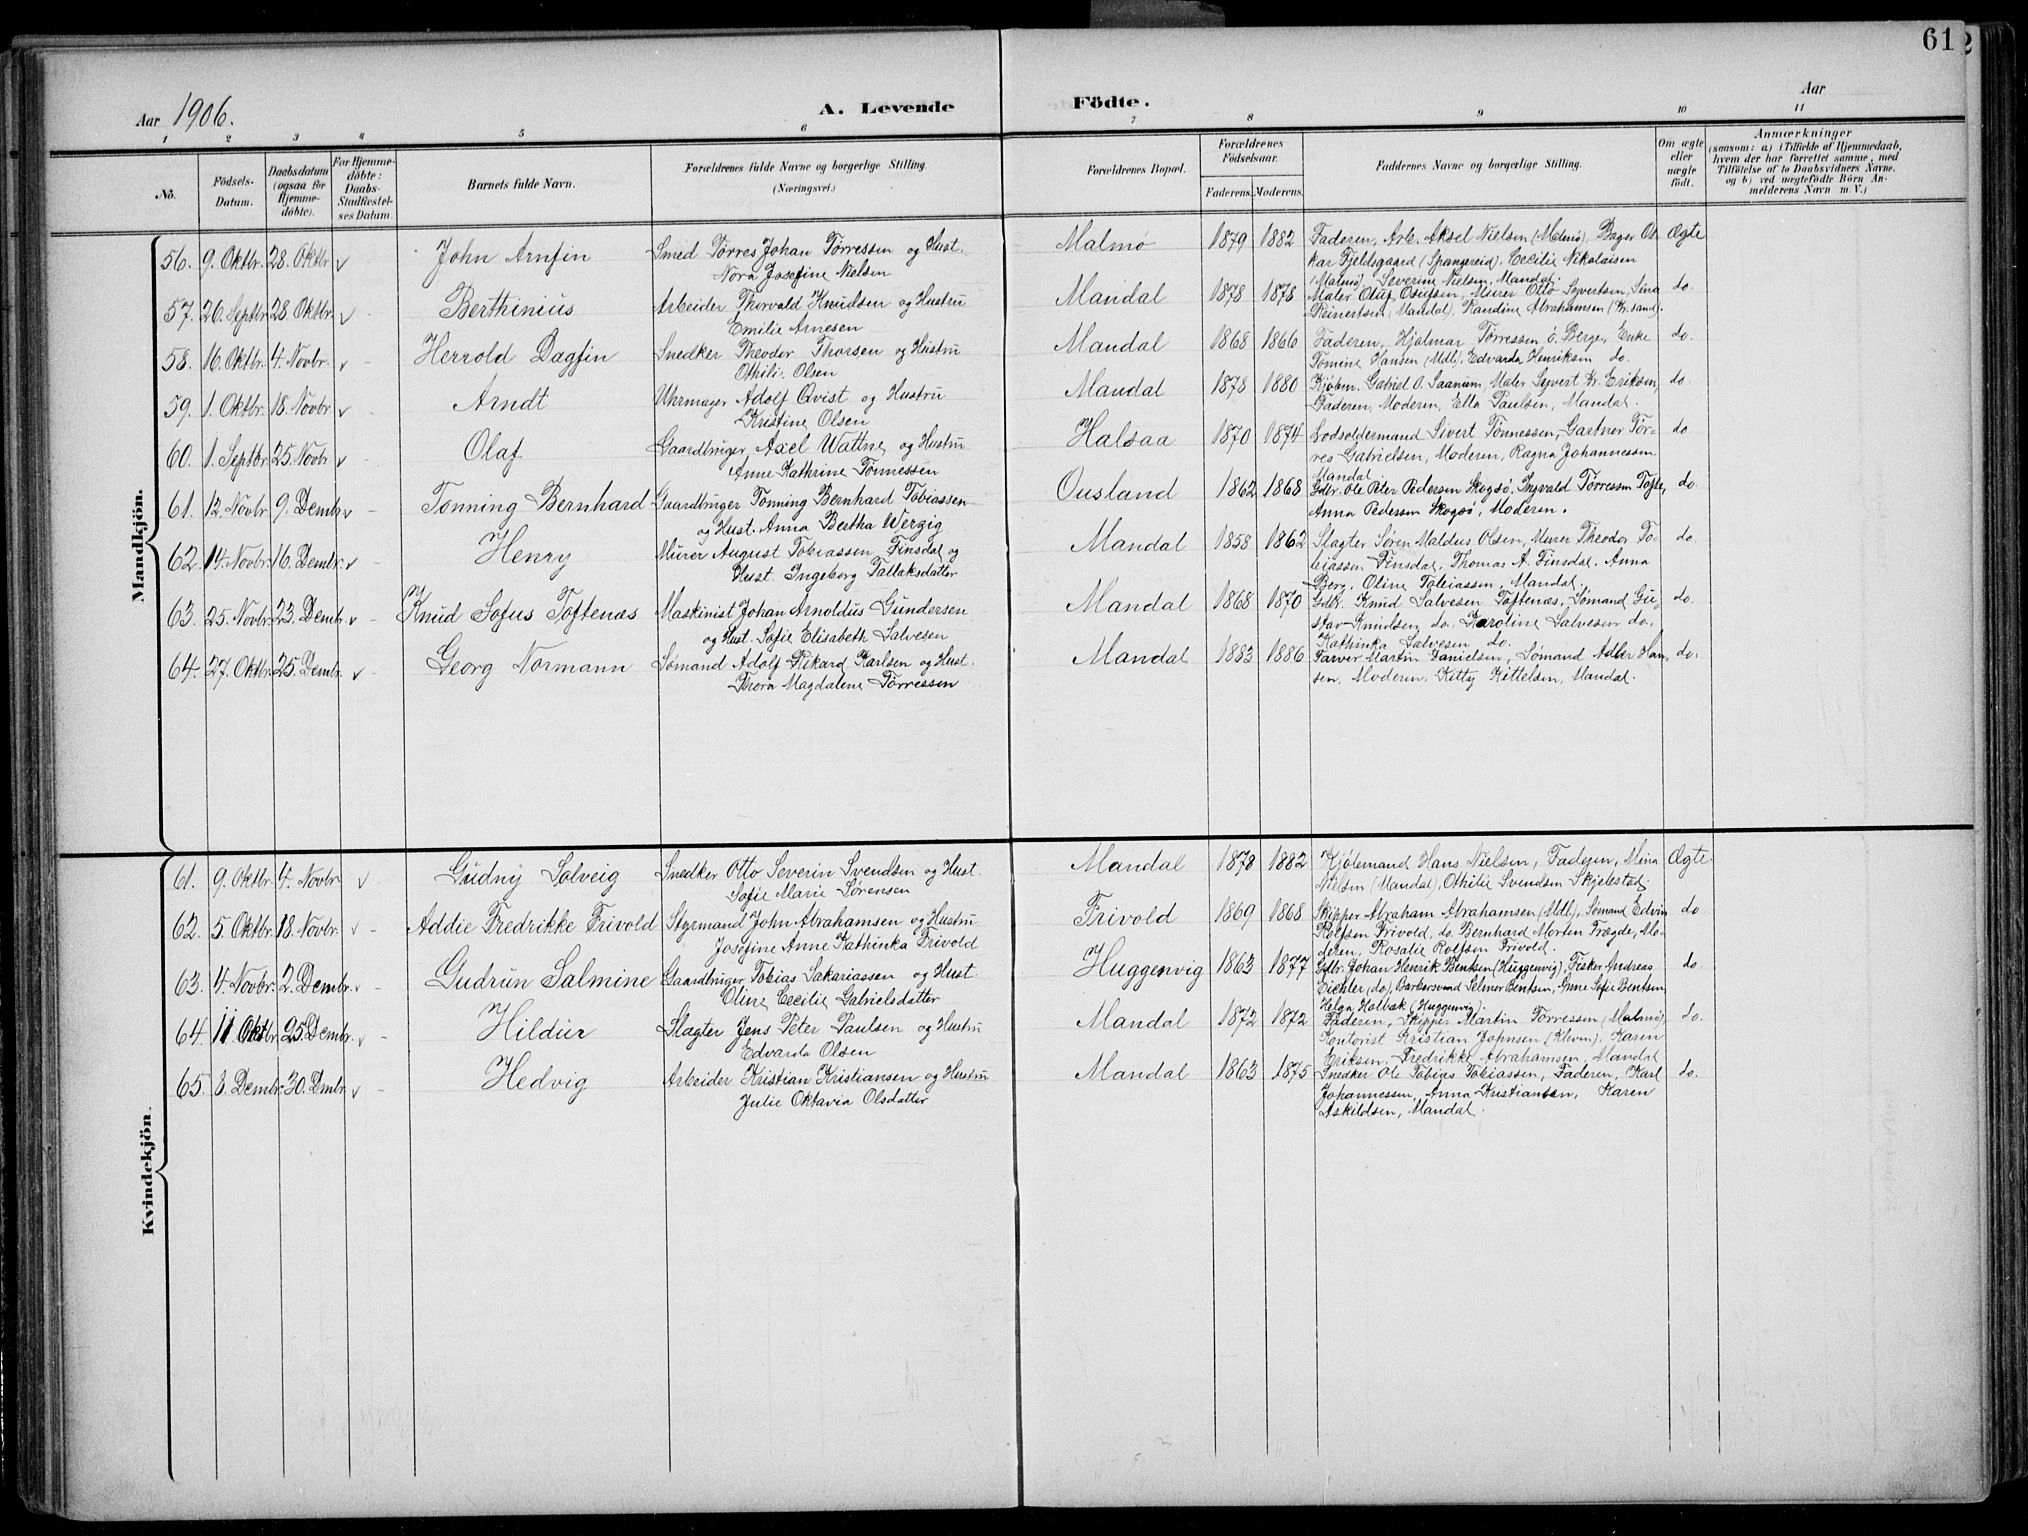 61
Aar 1906.
A. Levende
Födte.
Aar
1 2 3 4 5 6 7 8 9 10 11
No.
Födsels-Datum.
Daabsdatum (ogsaa for Hjemmedöbte).
For Hjemmedöbte: Daabs-Stadfæstelses Datum.
Barnets fulde Navn.
Forældrenes fulde Navne og borgerlige Stilling. (Næringsvei.)
Forældrenes Bopæl.
Forældrenes Födselsaar.
Faderens. Moderens.
Faddernes Navne og borgerlige Stilling.
Om ægte eller nægte födt.
Anmærkninger
(saasom: a) i Tilfælde af Hjemmedaab,
hvem der har forrettet samme, med
Tilföielse af to Daabsvidners Navne.
og b) ved uægtefödte Börn An-
melderens Navn m. V.)
Mandkjön.
56. 9. Oktbr. 28. Oktbr. John Arnfin Smed Tørres Johan Tørressen og Hust. Malmø 1879 1882 Faderen, Arb. Aksel Nielsen (Malmø), Bager Os- Ægte
Nora Josefine Nielsen kar Fjeldsgaard (Spangereid), Cecilie Nikolaisen
(Malmø), Severine Nielsen, Mandal.
57. 26. Septbr. 28. Oktbr. Berthinius Arbeider Thorvald Knudsen og Hustru Mandal 1878 1878 Maler Oluf Osufsen, Murer Otto Syvertsen, Sina do.
Emilie Arnesen Reinertsen (Mandal), Randine Abrahamsen (Kr.sand).
58. 16. Oktbr. 4. Novbr. Herrold Dagfin Snedker Theodor Thorsen og Hustru Mandal 1868 1866 Faderen, Hjalmar Tørressen ö. Berge, Enke do.
Othili. Olsen Tomine Hansen (Mdl), Edvarda Henriksen do.
59. 1. Oktbr. 18. Novbr. Arndt Uhrmager Adolf Qvist og Hustru Mandal 1878 1880 Kjøbm. Gabriel O. Saanum, Maler Syvert Kr. Eriksen, do.
Kristine Olsen Faderen, Moderen, Ella Paulsen, Mandal.
60. 1. Septbr. 25. Novbr. Olaf Gaardbruger Axel Wattne og Hustru Halsaa 1870 1874 Lodsoldermand Sivert Tønnessen, Gartner Tør- do.
Anne Kathrine Tønnessen res Gabrielsen, Moderen, Ragna Johannessen
Mandal
61. 12. Novbr. 9. Dembr. Tønning Bernhard Gaardbruger Tønning Bernhard Tobiassen Ousland 1862 1868 Gdbr. Ole Peter Pedersen Skogsø, Ingvald Tørressen Fogte, do.
og Hust. Anna Bertha Wergig Anna Pedersen Skogsø, Moderen.
62. 14. Novbr. 16. Dembr. Henry Murer August Tobiassen Finsdal og Mandal 1858 1862 Slagter Søren Maldus Olsen, Murer Theodor To- do.
Hust. Ingeborg Tallaksdatter biassen Finsdal, Thomas A. Finsdal, Anna
Berg, Oline Tobiassen, Mandal.
63. 25. Novbr. 23. Dembr. Knud Sofus Toftenæs Maskinist Johan Arnoldus Gundersen Mandal 1868 1870 Gdbr. Knud Salvesen Toftenæs, Sømand Gu- do.
og Hust. Sofie Elisabeth Salvesen stav Knudsen do., Karoline Salvesen do.,
Kathinka Salvesen do.
64. 27. Oktbr. 25. Dembr. Georg Normann Sømand Adolf Rikard Karlsen og Hust. Mandal 1883 1886 Farver Martin Danielsen, Sømand Adler Han- do.
Thora Magdalene Tørressen sen, Moderen, Kitty Kittelsen, Mandal.
Kvindekjön.
61. 9. Oktbr. 4. Novbr. Gudny Solveig Snedker Otto Severin Svendsen og Hust. Mandal 1878 1882 Kjølemand Hans Nielsen, Faderen, Mina Ægte
Sofie Marie Sørensen Nielsen (Mandal), Othilie Svendsen Skjelestad.
62. 5. Oktbr. 18. Novbr. Addie Fredrikke Frivold Styrmand John Abrahamsen og Hustru Frivold 1869 1868 Skipper Abraham Abrahamsen (Mdl), Sømand Edvin do.
Josefine Anne Kathinka Frivold Rolfsen Frivold, do. Bernhard Morten Frægde, Mo-
deren, Rosalie Rolfsen Frivold.
63. 4. Novbr. 2. Dembr. Gudrun Salmine Gaardbruger Tobias Sakariassen og Hust. Huggenvig 1863 1877 Gdbr. Johan Henrik Bentsen (Huggenvig), Fisker Andreas do.
Oline Cecilie Gabrielsdatter Eichler (do), Barbersvend Selmer Bentsen, Anne Sofie Bentsen
Helga Holbak (Huggenvig).
64. 11 Oktbr. 25. Dembr. Hildur Slagter Jens Peter Paulsen og Hustru Mandal 1872 1872 Faderen, Skipper Martin Tørressen (Malmø), do.
Edvarda Olsen Kontorist Kristian Johnsen (Kleven), Karen
Eriksen, Fredrikke Abrahamsen, Mandal
65. 8. Dembr. 30. Dmbr. Hedvig Arbeider Kristian Kristiansen og Hustru Mandal 1863 1875 Snedker Ole Tobias Tobiassen, Faderen, Karl do.
Julie Oktavia Olsdatter Johannessen, Anna Kristiansen, Karen
Askildsen, Mandal.